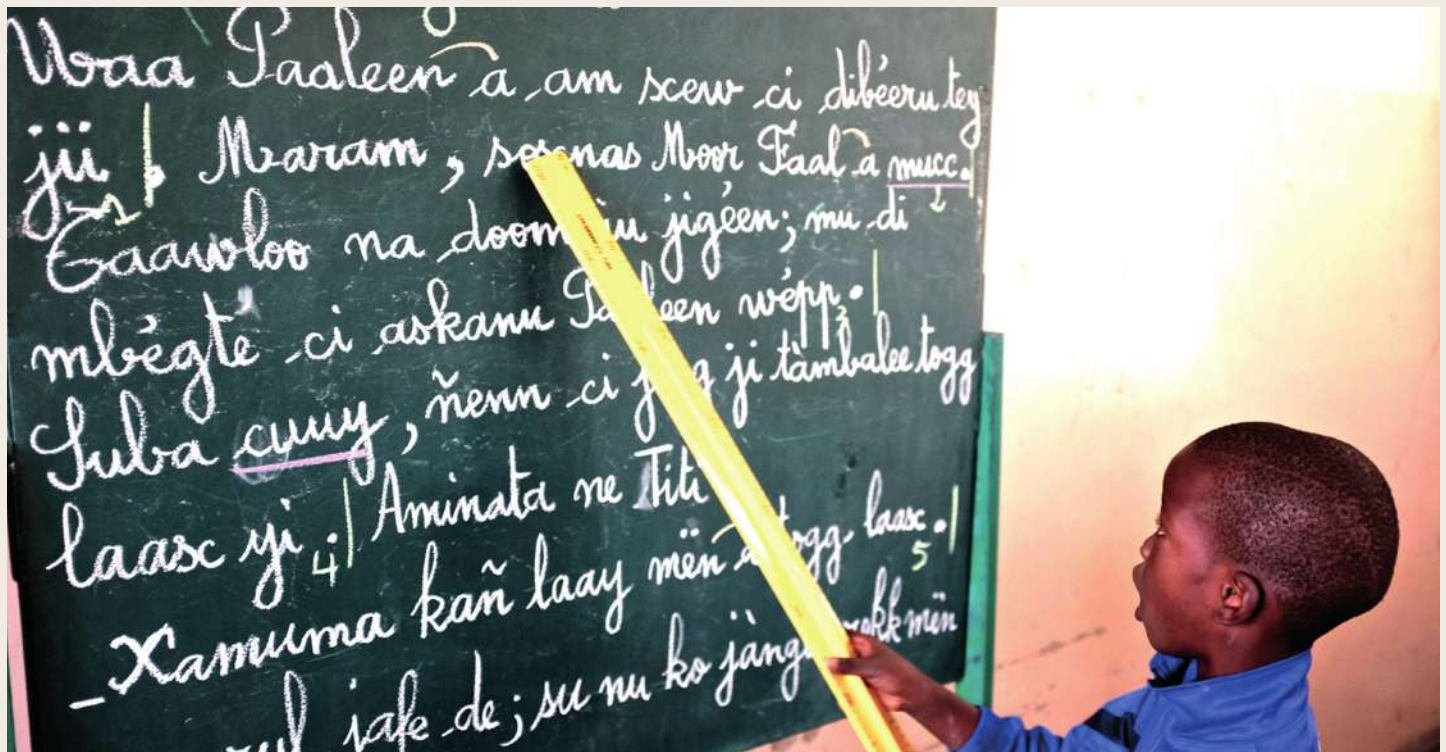 Waa Paaleen a am xew ci dibéeru tey
jii. Maram, soxnas Moor Faal a mucc.
Gaawloo na doom ju jigéen; mu di
mbégté ci askanu Paaleen wépp.
Suba cuuy, ñenn ci jigg ji tàmbalee togg
laasc yi. Aminata ne Titi
_ Xamuma kañ laay mën a togg laasc.
jafe de; su nu ko jàngee rekk mën
1
2
3
4
5